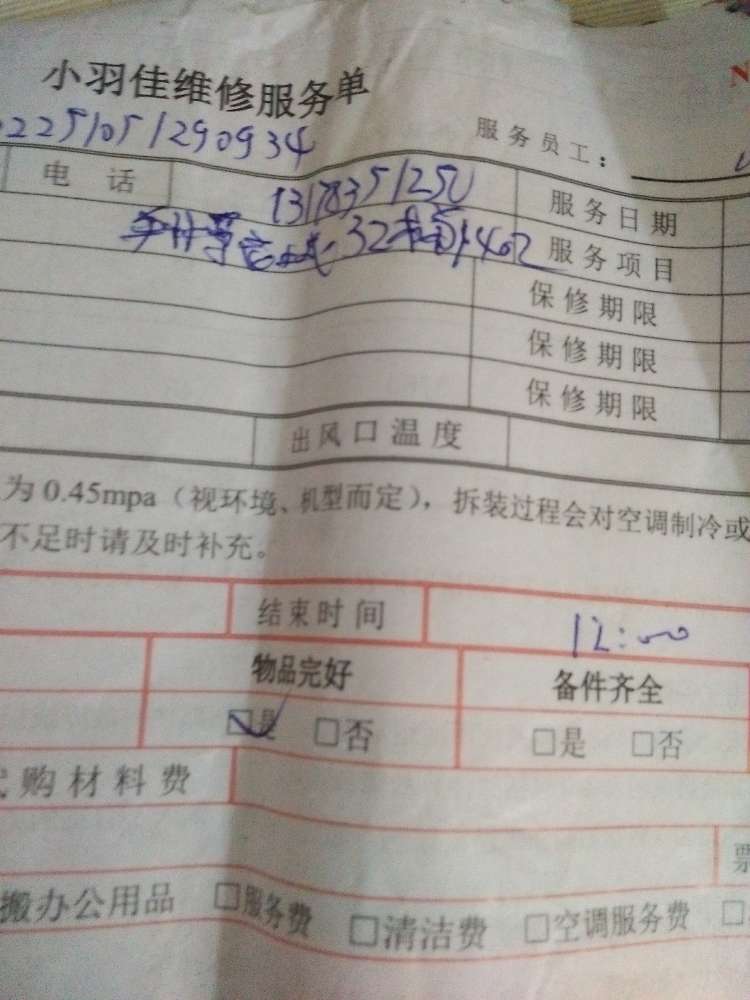 小羽佳维修服务单
N
2251051290934
服务员工：
电话
服务日期
32 402
服务项目
保修期限
保修期限
保修期限
出风口温度
为0.45mpa（视环境、机型而定），拆装过程会对空调制冷或
不足时请及时补充。
结束时间
12:00
物品完好
备件齐全
是 □否
□是 □否
购材料费
票
搬办公用品 □服务费 □清洁费 □空调服务费 □